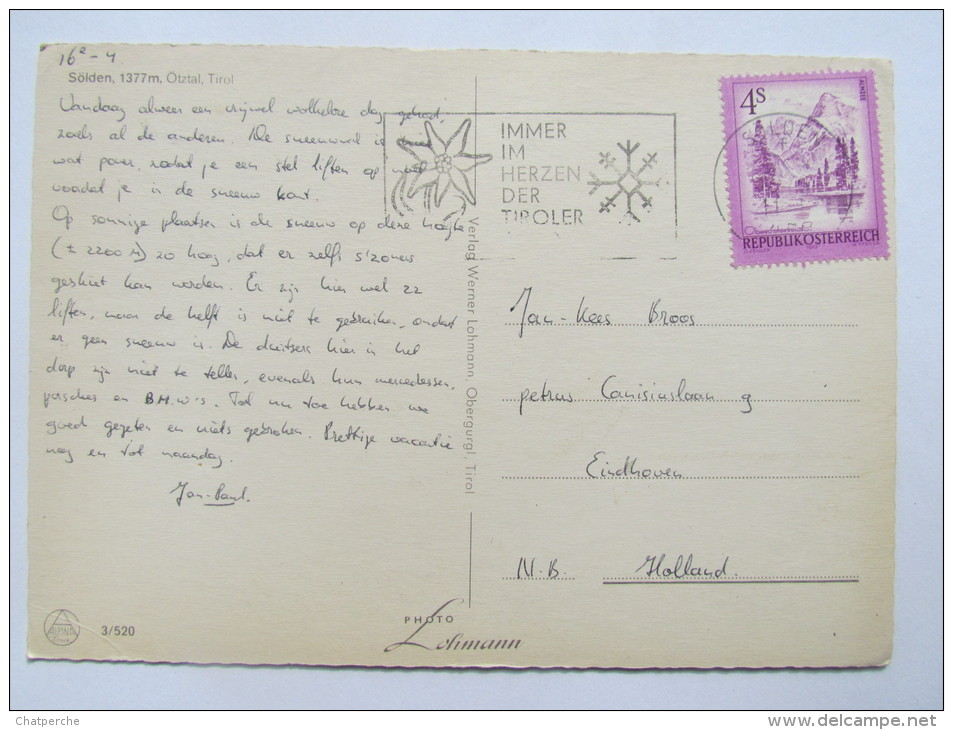 16² - 4
Sölden, 1377m, Ötztal, Tirol
Vandaag alweer een vrijwel wolkeloze dag gehad,
zoals al de anderen. De sneeuw is
wat pover, zodat je een stel liften op moet
voordat je in de sneeuw kant.
Op sonnige plaatsen is de sneeuw op deze hoogte
(± 2200 M) zo hoog, dat er zelfs s'zomers
geskiet kan worden. Er zijn hier wel 22
liften, waarvan de helft is niet te gebruiken, omdat
er geen sneeuw is. De duitsers hier in het
dorp zijn niet te tellen, evenals hun mercedessen,
porsches en B.M.W's. Tot nu toe hebben we
goed gegeten en niets gebroken. Prettige vacantie
nog en tot maandag.
Jan-Paul.
IMMER
IM
HERZEN
DER
TIROLER
4S
ALMSEE
SÖLDEN
REPUBLIK ÖSTERREICH
Verlag Werner Lohmann, Obergurgl, Tirol
Jan-Kees Broos
petrus Canisiuslaan 9
Eindhoven
N.B. Holland.
ALPINA
3/520
PHOTO
Lohmann
Chatperche
www.delcampe.net